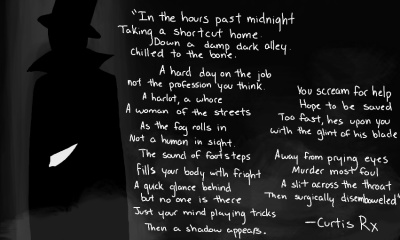 "In the hours past midnight
Taking a shortcut home
Down a damp dark alley.
Chilled to the bone.
A hard day on the job
not the profession you think.
A harlot, a whore
A woman of the streets
As the fog rolls in
Not a human in sight.
The sound of footsteps
Fills your body with fright
A quick glance behind
but no one is there
Just your mind playing tricks
Then a shadow appears.
You scream for help
Hope to be saved
Too fast, hes upon you
with the glint of his blade
Away from prying eyes
Murder most foul
A slit across the throat
Then surgically disemboweled"
—Curtis Rx